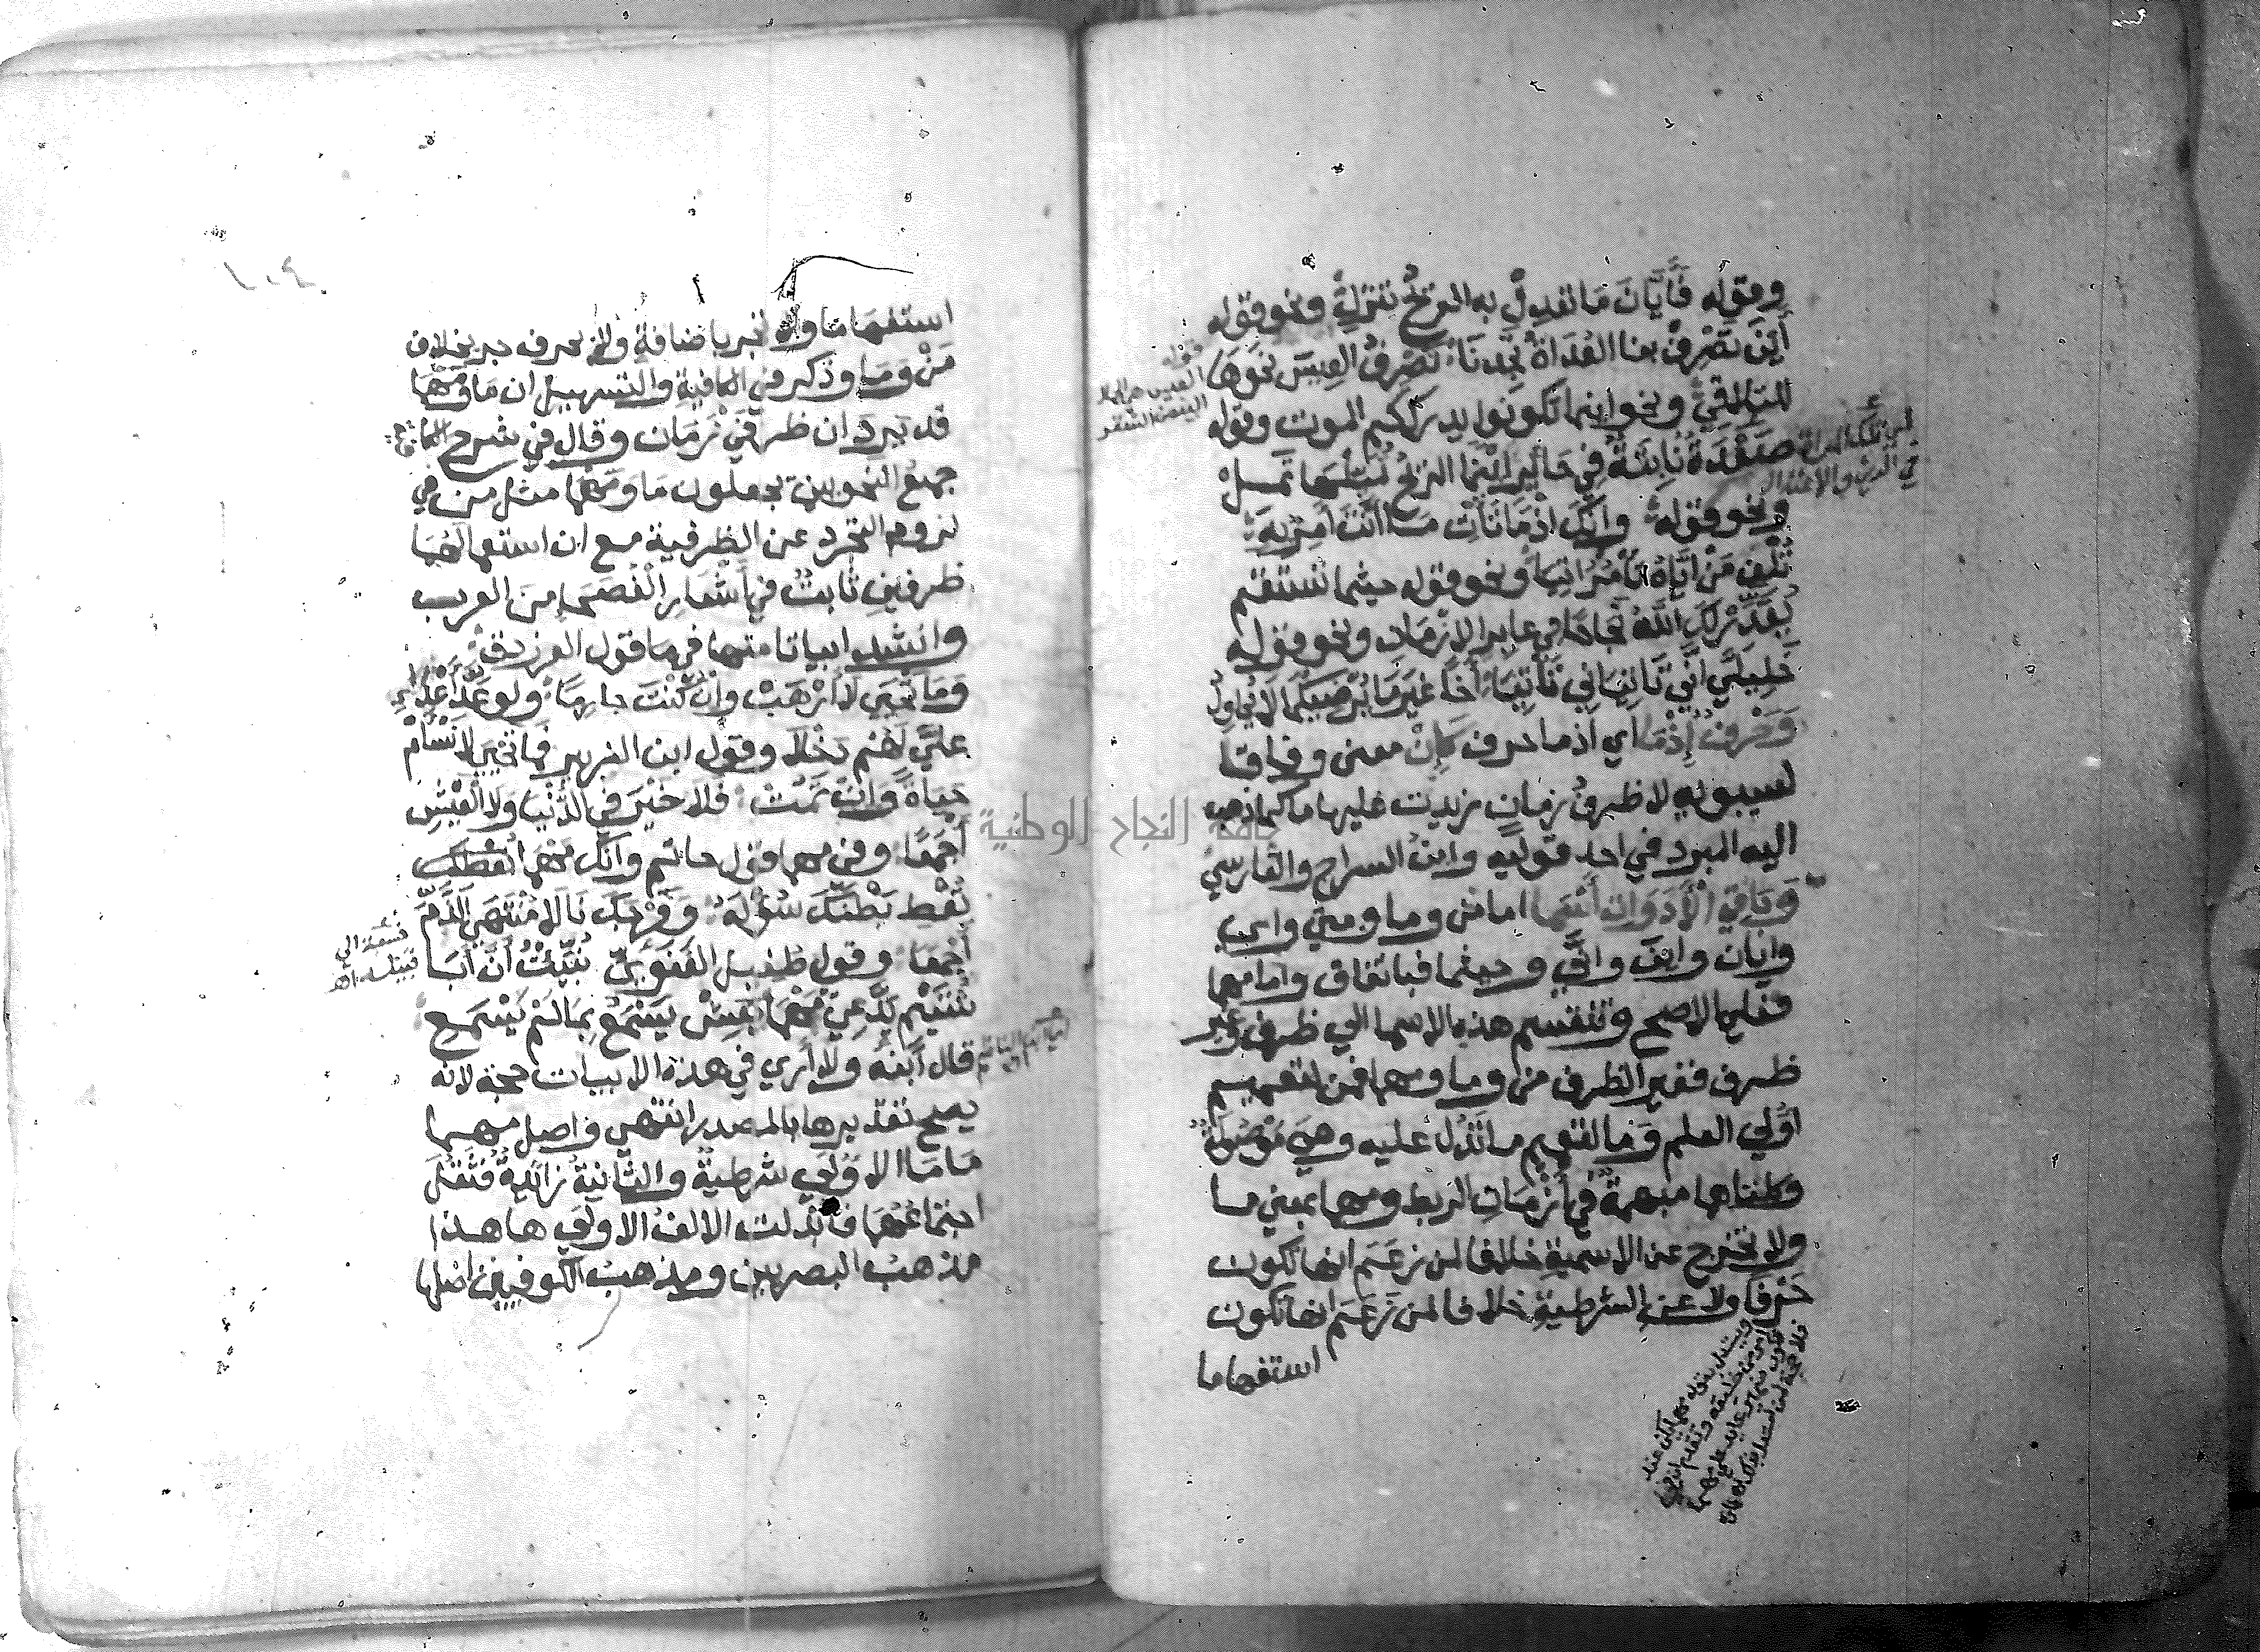 وقوله فَأَيَّانَ مَا تَعْدِلْ بِهِ الريحُ تَنْزِلْ ونحو قوله
أَيْنَ تَصْرِفْ بنا العُدَاةُ تَجِدْنَا نَصْرِفُ العِيسَ نَحْوَهَا
للتلاقي ونحو اينما تكونوا يدرككم الموت وقوله
صَعْدَةٌ نَابِتَةٌ فِي حَائِرٍ أَيْنَمَا الريحُ تُمَيِّلْهَا تَمِلْ
ونحو قوله وانك اذْمَا تَأْتِ مَا أَنْتَ آمِرٌ بِهِ
تُلْفِ مَنْ ايَّاهُ تَأْمُرُ آتِيَا ونحو قوله حيثما تستقم
يُقَدِّرْ لَكَ اللَّهُ نَجَاحًا في غابر الازمان ونحو قوله
خَلِيلَيَّ أَنَّى تَأْتِيَانِي تَأْتِيَا أَخًا غَيْرَ مَا يُرْضِيكُمَا لَا يُحَاوِلُ
وَحَرْفٌ إِذْمَا اي اذما حرف كَإِنْ معنى وفاقا
لسيبويه لا ظرفُ زمان زيدت عليها ما كما ذهب
اليه المبرد في احد قوليه وابن السراج والفارسي
وَبَاقِي الْأَدَوَاتِ أَسْمَا اما من وما ومتى واي
وايان واين وانى وحيثما فباتفاق واما مهما
فعلى الاصح وتنقسم هذه الاسما الي ظرف وغير
ظرف فغير الظرف من وما ومهما فمن لتعميم
اولي العلم وَمَا لتعميم ما تَدُلُّ عليه وهي مَوْصُولَةٌ
وكلتاهما مبهمةٌ في أَزْمَانِ الربط ومهما بمعني ما
ولا تخرج عن الاسمية خلافا لمن زعَمَ انها تكون
حَرْفًا ولا عن الشرطية خلافا لمن زَعَمَ انها تكون
استفهاما
استفهاما ولا تجر باضافة ولا بحرف جر بخلاف
مَنْ وَمَا وذكر في الكافية والتسهيل ان ما ومهما
قد يردان ظرفي زمان وقال في شرح الكافية
جميع النحويين يجعلون ما ومهما مثل من في
لزوم التجرد عن الظرفية مع ان استعمالهما
ظرفين ثابتٌ في أَشعار الفُصَحا من العرب
وانشد ابياتا منها في ما قول الفرزدق
وَمَا تَحْيَى لَا أَرْهَبْ وَإِنْ كُنْتَ جارما ولو عَدَّ أَعْدَائِي
عليَّ لَهُم ذَحْلَا وقول ابن الزبير فَمَا تَحْيَى لَا نَسْأَمْ
حَيَاةً وَإنْ تَمُتْ فلا خَيْرَ فِي الدُّنْيَا وَلَا الْعَيْشِ
أَجْمَعَا وفي مهما قول حاتم وانك مَهْمَا تُعْطِ
تُعْطِ بَطْنَكَ سُؤْلَهُ وَفَرْجَكَ نَالَا مُنْتَهَى الذَّمِّ
أَجْمَعَا وقول طفيل الغَنَوِيِّ نُبِّئْتُ أَنَّ أَبَا
شُتَيْمٍ يَدَّعِي مَهْمَا يَعِشْ يَسْمَعْ بِمَا لَمْ يُسْمَعِ
قال ابنه ولا أَري في هذه الابيات حجة لانه
يصح تقديرها بالمصدر انتهي واصل مهما
مَا مَا الاولي شرطية والثانية زائدةٌ فثَقُلَ
اجتماعهما فأُبْدلت الالفُ الاولي ها هذا
مذهب البصريين ومذهب الكوفيين اصلها